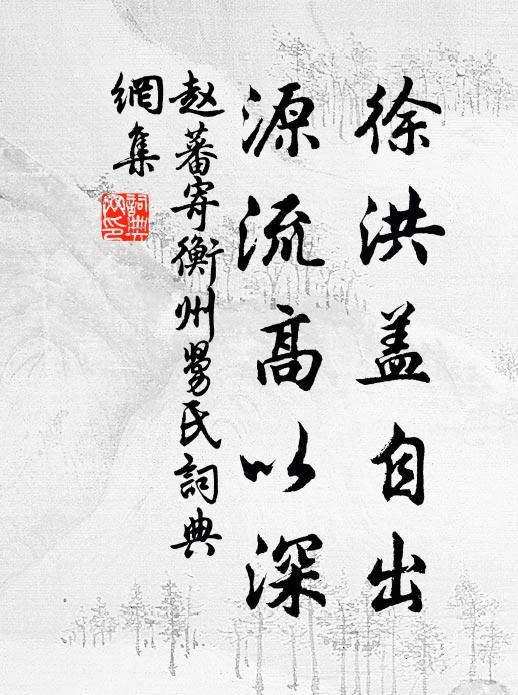 徐洪盖自出
源流高以深
赵蕃寄衡州舅氏詞典
網集
詞典網印